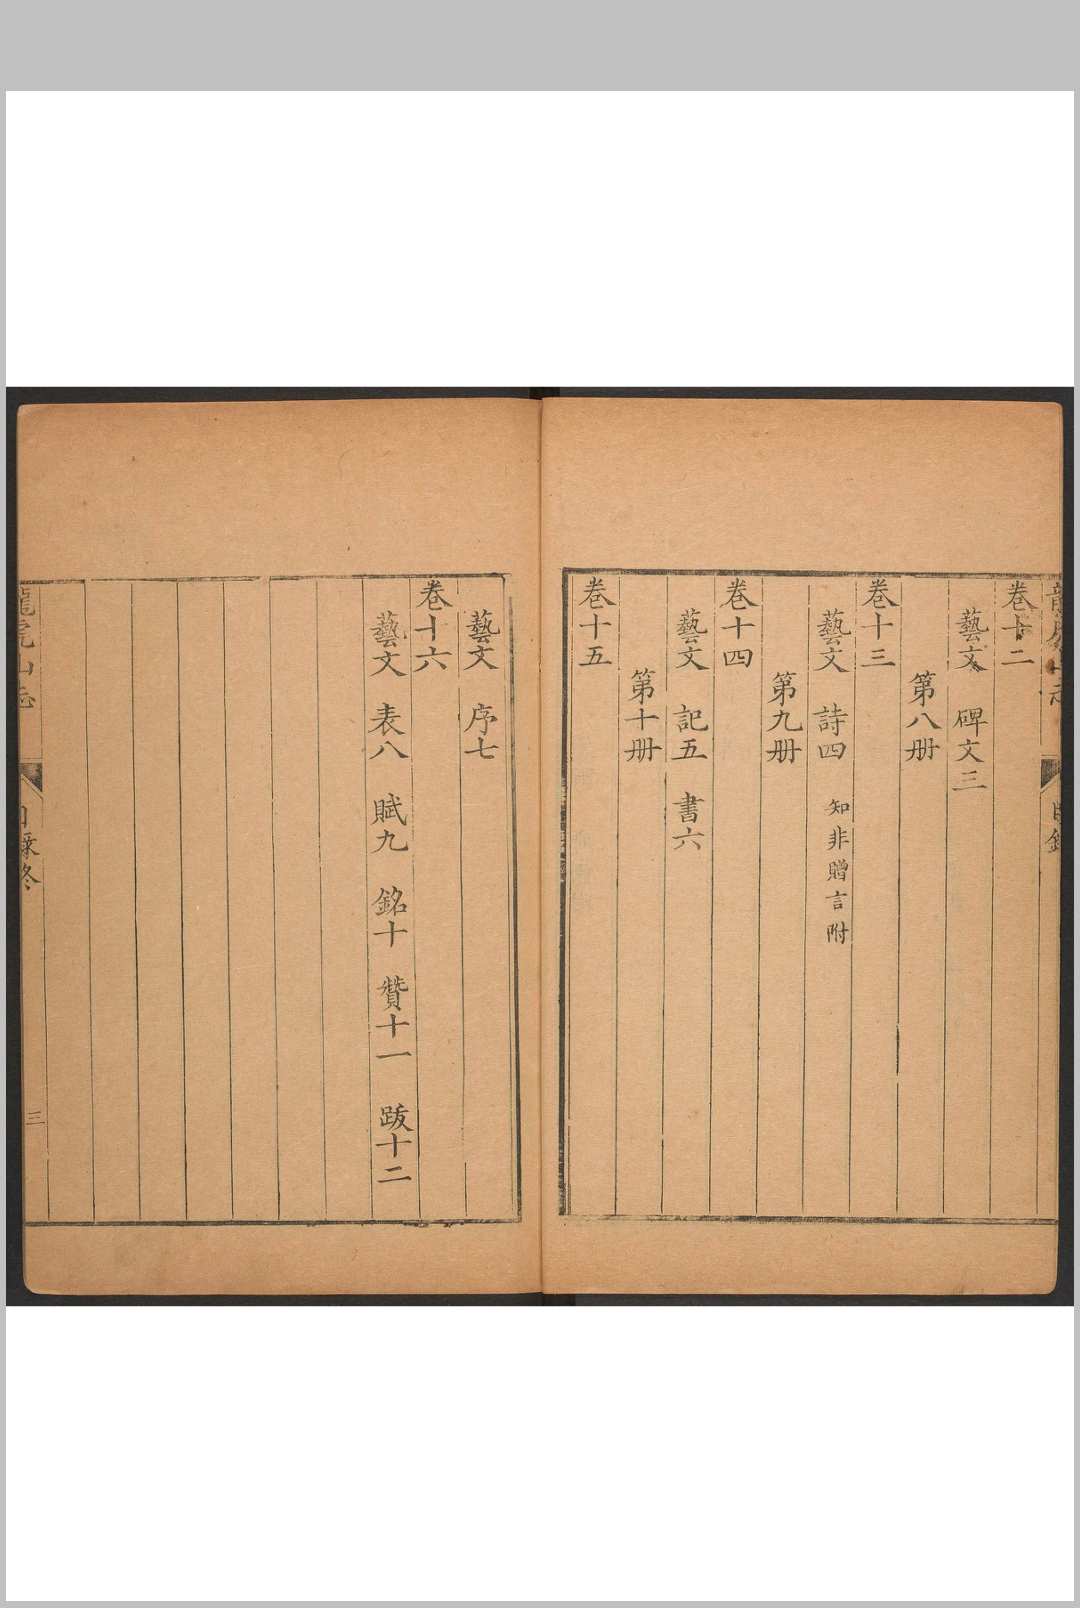 卷十二
藝文 碑文三
第八册
卷十三
藝文 詩四 知非贈言附
第九册
卷十四
藝文 記五 書六
第十册
卷十五
藝文 序七
卷十六
藝文 表八 賦九 銘十 贊十一 跋十二
龍虎山志 目録終 三